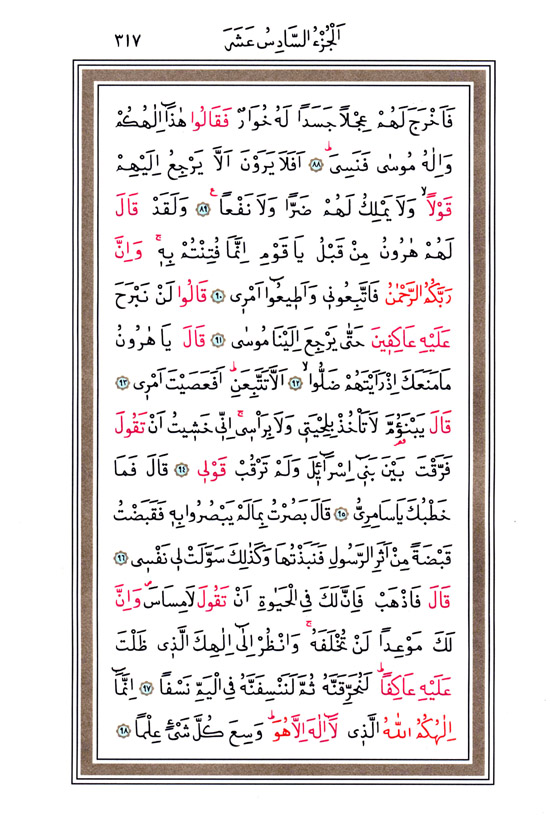 اَلْجُزْءُ السَّادِسُ عَشَرَ ٣١٧
فَاَخْرَجَ لَهُمْ عِجْلًا جَسَدًا لَهُ خُوَارٌ فَقَالُوا هٰذَٓا اِلٰهُكُمْ
وَاِلٰهُ مُوسٰى فَنَسِىَۜ ﴿٨٨﴾ اَفَلَا يَرَوْنَ اَلَّا يَرْجِعُ اِلَيْهِمْ
قَوْلًاۙ وَلَا يَمْلِكُ لَهُمْ ضَرًّا وَلَا نَفْعًا۟ ﴿٨٩﴾ وَلَقَدْ قَالَ
لَهُمْ هٰرُونُ مِنْ قَبْلُ يَا قَوْمِ اِنَّمَا فُتِنْتُمْ بِهٖۚ وَاِنَّ
رَبَّكُمُ الرَّحْمٰنُ فَاتَّبِعُونٖى وَاَطٖيعُٓوا اَمْرٖى ﴿٩٠﴾ قَالُوا لَنْ نَبْرَحَ
عَلَيْهِ عَاكِفٖينَ حَتّٰى يَرْجِعَ اِلَيْنَا مُوسٰى ﴿٩١﴾ قَالَ يَا هٰرُونُ
مَا مَنَعَكَ اِذْ رَاَيْتَهُمْ ضَلُّواۙ ﴿٩٢﴾ اَلَّا تَتَّبِعَنِۜ اَفَعَصَيْتَ اَمْرٖى ﴿٩٣﴾
قَالَ يَبْنَؤُ۬مَّ لَا تَأْخُذْ بِلِحْيَتٖى وَلَا بِرَأْسٖىۚ اِنّٖى خَشٖيتُ اَنْ تَقُولَ
فَرَّقْتَ بَيْنَ بَنٖٓى اِسْرَٓائٖلَ وَلَمْ تَرْقُبْ قَوْلٖى ﴿٩٤﴾ قَالَ فَمَا
خَطْبُكَ يَا سَامِرِىُّ ﴿٩٥﴾ قَالَ بَصُرْتُ بِمَا لَمْ يَبْصُرُوا بِهٖ فَقَبَضْتُ
قَبْضَةً مِنْ اَثَرِ الرَّسُولِ فَنَبَذْتُهَا وَكَذٰلِكَ سَوَّلَتْ لٖى نَفْسٖى ﴿٩٦﴾
قَالَ فَاذْهَبْ فَاِنَّ لَكَ فِى الْحَيٰوةِ اَنْ تَقُولَ لَا مِسَاسَۖ وَاِنَّ
لَكَ مَوْعِدًا لَنْ تُخْلَفَهُۚ وَانْظُرْ اِلٰٓى اِلٰهِكَ الَّذٖى ظَلْتَ
عَلَيْهِ عَاكِفًاۜ لَنُحَرِّقَنَّهُ ثُمَّ لَنَنْسِفَنَّهُ فِى الْيَمِّ نَسْفًا ﴿٩٧﴾ اِنَّمَٓا
اِلٰهُكُمُ اللّٰهُ الَّذٖى لَٓا اِلٰهَ اِلَّا هُوَۜ وَسِعَ كُلَّ شَىْءٍ عِلْمًا ﴿٩٨﴾